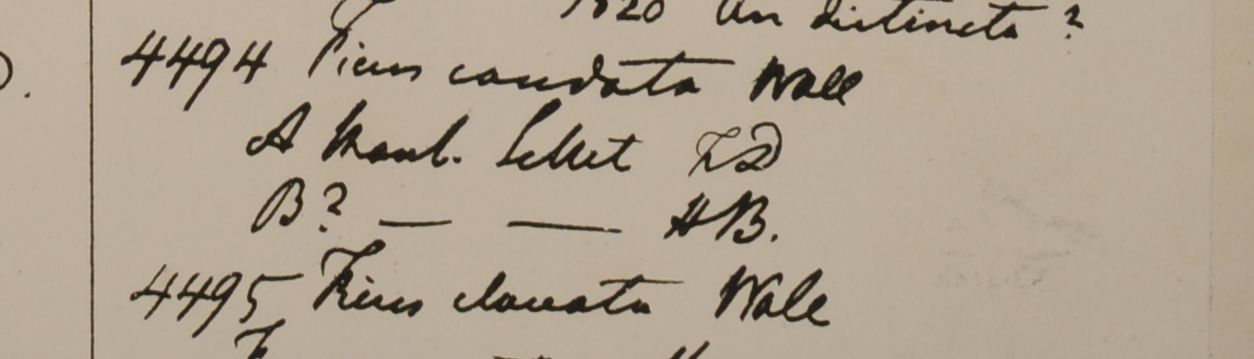 1820 An distincta?
4494 Ficus caudata Wall
A Mont. Sillet FD
B? — — HB.
4495 Ficus clavata Wall